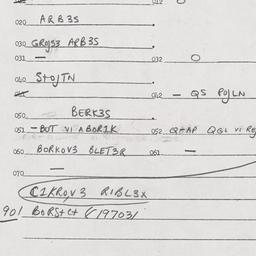 012 O
020 ARB3S
030 GROJS3 ARB3S
031 — 032 O
040 StOJTN
042 — QS POJLN
050 BERK3S
051 — BOT VI ABOR1K 052 QHAP QGL VI
060 BORKOV3 BLET3R 061 —
070 —
C1KROV3 R1BL3X
901 BORSTCT (/19703/